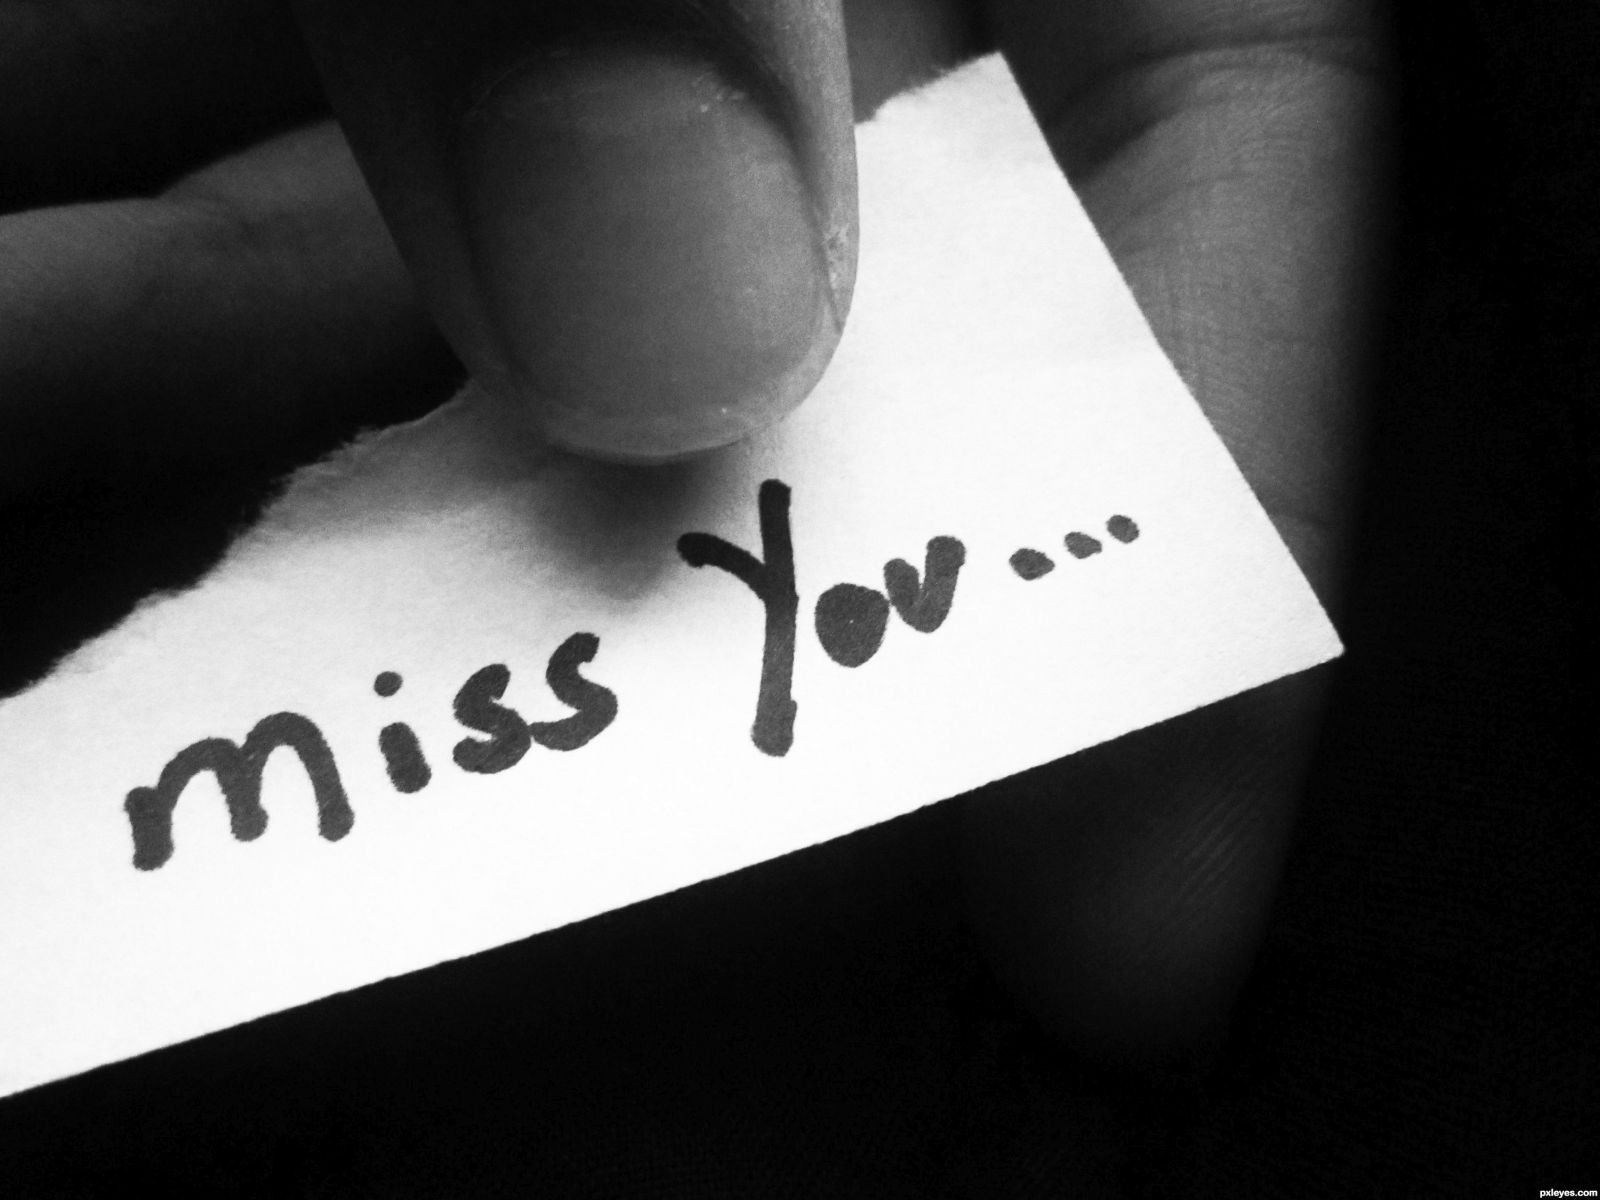 miss You...
pxleyes.com